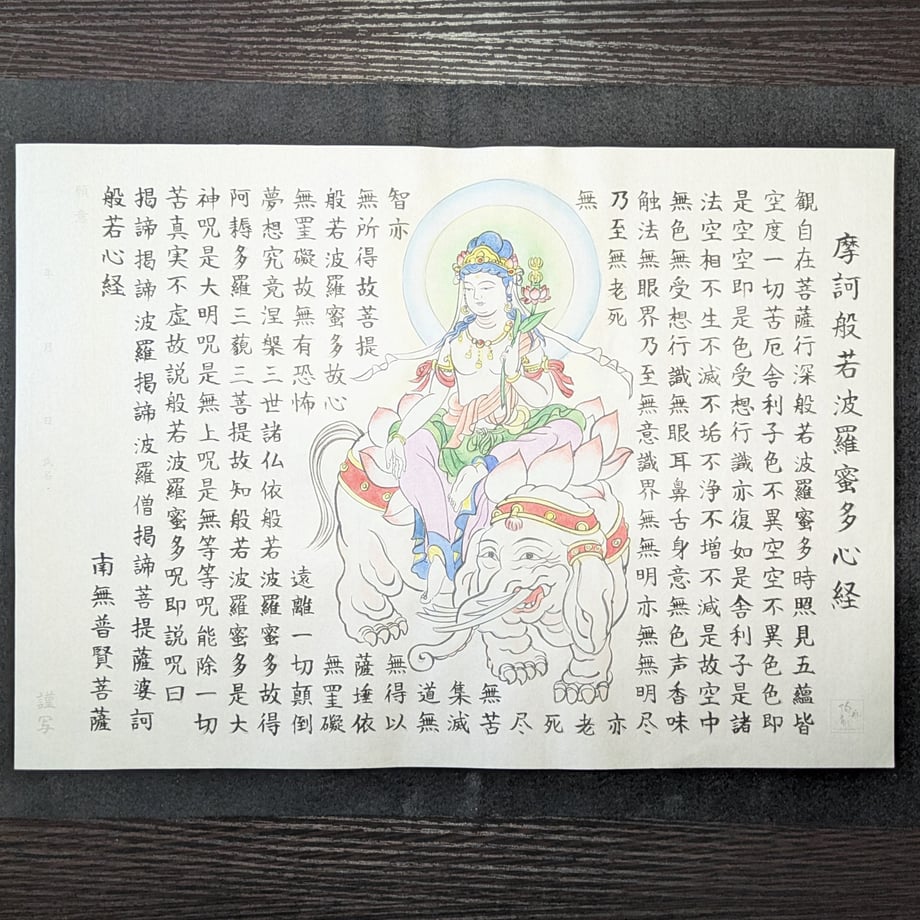 摩訶般若波羅蜜多心経
観自在菩薩行深般若波羅蜜多時照見五蘊皆
空度一切苦厄舎利子色不異空空不異色色即
是空空即是色受想行識亦復如是舎利子是諸
法空相不生不滅不垢不浄不増不減是故空中
無色無受想行識無眼耳鼻舌身意無色声香味
触法無眼界乃至無意識界無無明亦無無明尽
乃至無老死亦
無老
死
尽
無苦
集滅
道無
智亦無得以
無所得故菩提薩埵依
般若波羅蜜多故心無罣礙
無罣礙故無有恐怖遠離一切顛倒
夢想究竟涅槃三世諸仏依般若波羅蜜多故得
阿耨多羅三藐三菩提故知般若波羅蜜多是大
神呪是大明呪是無上呪是無等等呪能除一切
苦真実不虚故説般若波羅蜜多呪即説呪曰
掲諦掲諦波羅掲諦波羅僧掲諦菩提薩婆訶
般若心経 南無普賢菩薩
願意
年 月 日 氏名
謹写